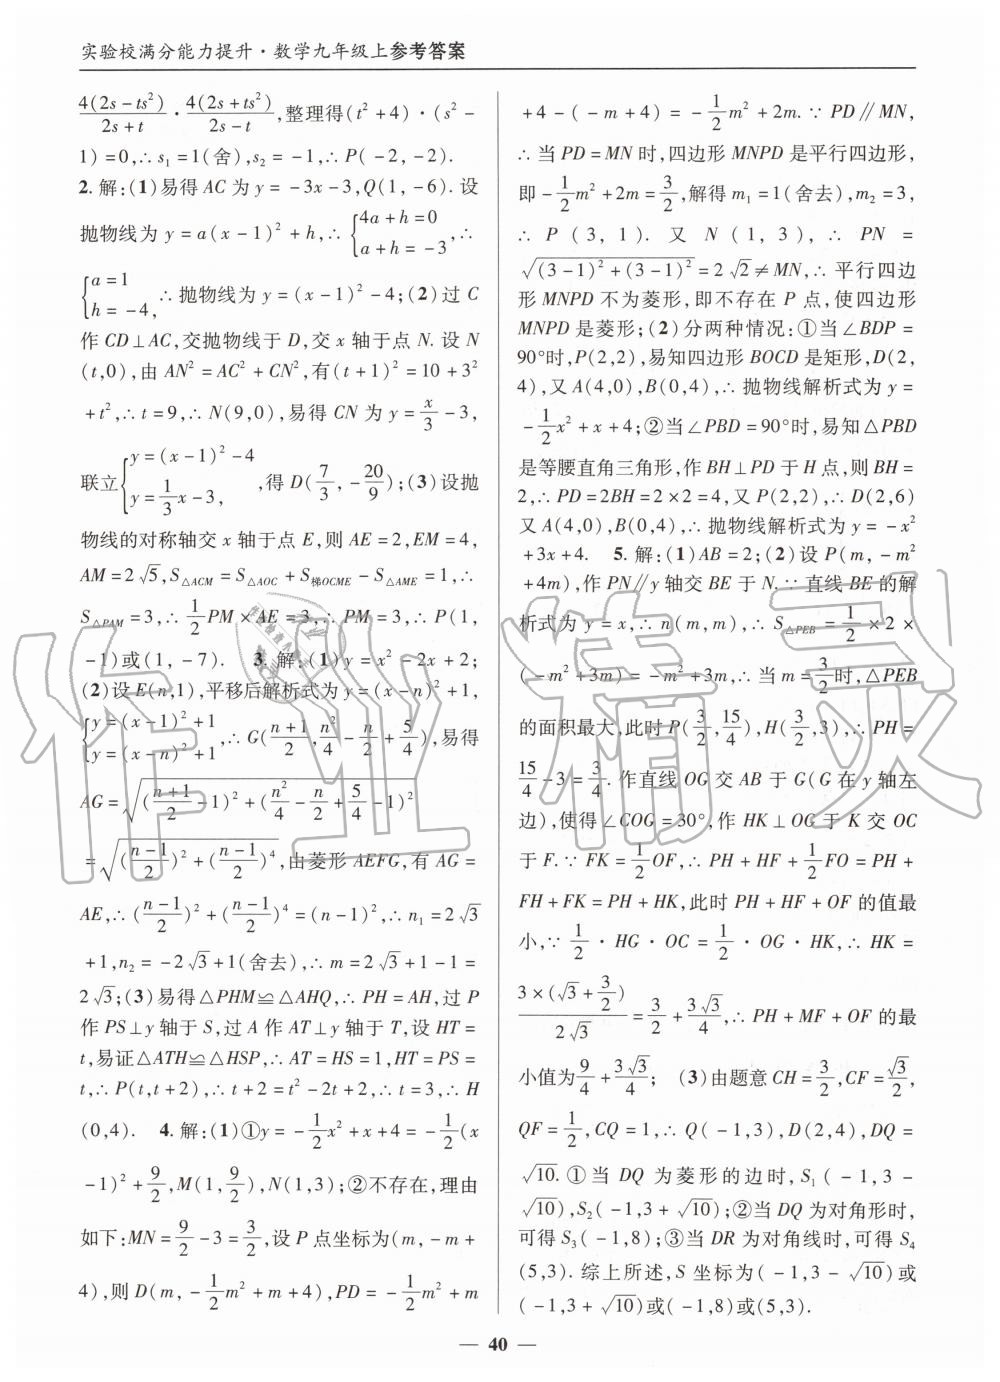 实验校满分能力提升·数学九年级上参考答案
4(2s-ts²)/(2s+t)·4(2s+ts²)/(2s-t),整理得(t²+4)·(s²-
1)=0,∴s₁=1(舍),s₂=-1,∴P(-2,-2).
2.解:(1)易得AC为y=-3x-3,Q(1,-6).设
抛物线为y=a(x-1)²+h,∴{4a+h=0 a+h=-3,∴
{a=1 h=-4,∴抛物线为y=(x-1)²-4;(2)过C
作CD⊥AC,交抛物线于D,交x轴于点N.设N
(t,0),由AN²=AC²+CN²,有(t+1)²=10+3²
+t²,∴t=9,∴N(9,0),易得CN为y=x/3-3,
联立{y=(x-1)²-4 y=1/3x-3,得D(7/3,-20/9);(3)设抛
物线的对称轴交x轴于点E,则AE=2,EM=4,
AM=2√5,S△ACM=S△AOC+S梯OCME-S△AME=1,∴
S△PAM=3,∴1/2PM×AE=3,∴PM=3,∴P(1,
-1)或(1,-7). 3.解:(1)y=x²-2x+2;
(2)设E(n,1),平移后解析式为y=(x-n)²+1,
{y=(x-1)²+1 y=(x-n)²+1,∴G((n+1)/2,n²/4-n/2+5/4),易得
AG=√(((n+1)/2-1)²+(n²/4-n/2+5/4-1)²)
=√(((n-1)/2)²+((n-1)/2)⁴),由菱形AEFG,有AG=
AE,∴((n-1)/2)²+((n-1)/2)⁴=(n-1)²,∴n₁=2√3
+1,n₂=-2√3+1(舍去),∴m=2√3+1-1=
2√3;(3)易得△PHM≌△AHQ,∴PH=AH,过P
作PS⊥y轴于S,过A作AT⊥y轴于T,设HT=
t,易证△ATH≌△HSP,∴AT=HS=1,HT=PS=
t,∴P(t,t+2),∴t+2=t²-2t+2,∴t=3,∴H
(0,4). 4.解:(1)①y=-1/2x²+x+4=-1/2(x
-1)²+9/2,M(1,9/2),N(1,3);②不存在,理由
如下:MN=9/2-3=3/2,设P点坐标为(m,-m+
4),则D(m,-1/2m²+m+4),PD=-1/2m²+m
+4-(-m+4)=-1/2m²+2m.∵PD∥MN,
∴当PD=MN时,四边形MNPD是平行四边形,
即-1/2m²+2m=3/2,解得m₁=1(舍去),m₂=3,
∴P(3,1).又N(1,3),∴PN=
√((3-1)²+(3-1)²)=2√2≠MN,∴平行四边
形MNPD不为菱形,即不存在P点,使四边形
MNPD是菱形;(2)分两种情况:①当∠BDP=
90°时,P(2,2),易知四边形BOCD是矩形,D(2,
4),又A(4,0),B(0,4),∴抛物线解析式为y=
-1/2x²+x+4;②当∠PBD=90°时,易知△PBD
是等腰直角三角形,作BH⊥PD于H点,则BH=
2,∴PD=2BH=2×2=4,又P(2,2),∴D(2,6)
又A(4,0),B(0,4),∴抛物线解析式为y=-x²
+3x+4. 5.解:(1)AB=2;(2)设P(m,-m²
+4m),作PN∥y轴交BE于N.∵直线BE的解
析式为y=x,∴n(m,m),∴S△PEB=1/2×2×
(-m²+3m)=-m²+3m,∴当m=3/2时,△PEB
的面积最大,此时P(3/2,15/4),H(3/2,3),∴PH=
15/4-3=3/4.作直线OG交AB于G(G在y轴左
边),使得∠COG=30°,作HK⊥OG于K交OC
于F.∵FK=1/2OF,∴PH+HF+1/2FO=PH+
FH+FK=PH+HK,此时PH+HF+OF的值最
小,∵1/2·HG·OC=1/2·OG·HK,∴HK=
3×(√3+3/2)/(2√3)=3/2+3√3/4,∴PH+MF+OF的最
小值为9/4+3√3/4; (3)由题意CH=3/2,CF=√3/2,
QF=1/2,CQ=1,∴Q(-1,3),D(2,4),DQ=
√10.①当DQ为菱形的边时,S₁(-1,3-
√10),S₂(-1,3+√10);②当DQ为对角形时,
可得S₃(-1,8);③当DR为对角线时,可得S₄
(5,3).综上所述,S坐标为(-1,3-√10)或
(-1,3+√10)或(-1,8)或(5,3).
— 40 —
作业精灵